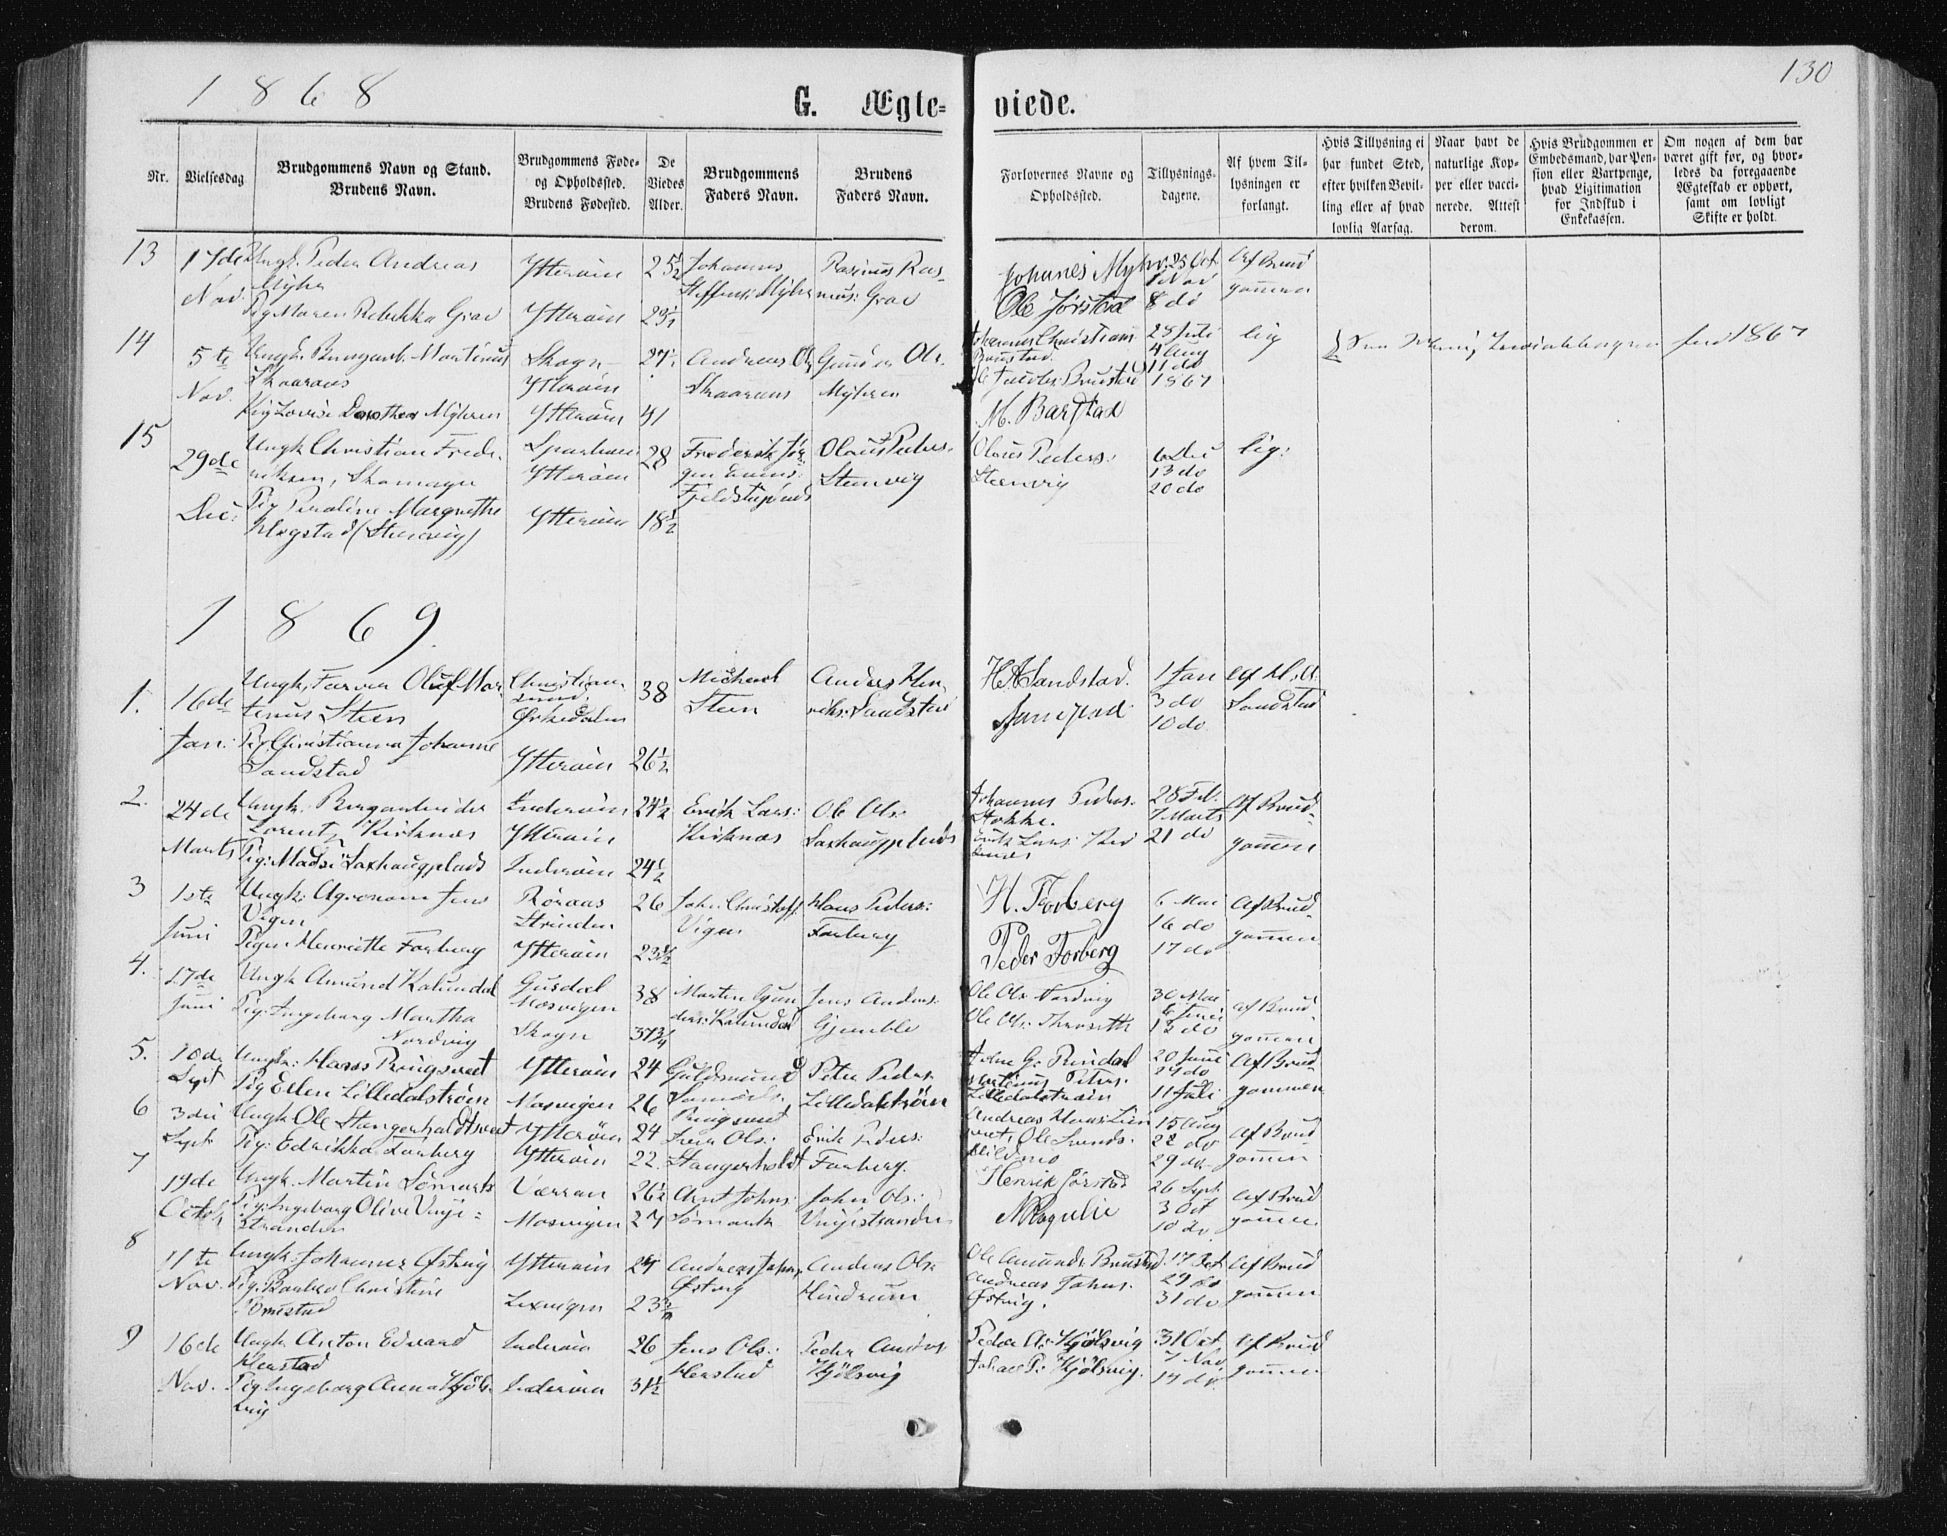 1868
G. Ægte=
viede.
130
Nr.
Vielsesdag
Brudgommens Navn og Stand.
Brudens Navn.
Brudgommens Føde=
og Opholdssted.
Brudens Fødested.
De
Viedes
Alder.
Brudgommens
Faders Navn.
Brudens
Faders Navn.
Forlovernes Navne og
Opholdssted.
Tillysnings=
dagene.
Af hvem Til=
lysningen er
forlangt.
Hvis Tillysning ei
har fundet Sted,
efter hvilken Bevil=
ling eller af hvad
lovlig Aarsag.
Naar havt de
naturlige Kop=
per eller vacci=
nerede. Attest
derom.
Hvis Brudgommen er
Embedsmand, har Pen=
sion eller Vartpenge,
hvad Legitimation
for Indskud i
Enkekassen.
Om nogen af dem har
været gift før, og hvor=
ledes da foregaaende
Ægteskab er ophørt,
samt om lovligt
Skifte er holdt.
13
17de
Nov.
Ungk. Peder Andreas
Myhr
Pig Maren Rebekka Grav
Ytterøen
Ytterøen
25½
23½
Johannes
Steffens: Myhr
Rasmus Ras-
mus: Grav
Johanes Myhr
Ole Jørstad
25 Oct
1 Nov
8 do
Af Brud
gommen
14
5te
Nov.
Ungk. Bergarb. Martinus
Skaanes
Pig Lovise Dorothea Myhren
Skogn
Ytterøen
Ytterøen
27½
41
Andreas Ol:
Gunder Ols.
Myhren
Johannes Christians
Ole Jacobs: Brustad
M. Barstad
25 Juli
4 Aug
11 do
1867
lig
15
29de
Dec:
Ungk Christian Frede-
riksen, Skomager
Pig Peroline Margrethe
Hogstad (Steenvig)
Sparbuen
Ytterøen
Ytterøen
28
18½
Frederik Jør-
gen
Olaus Peders:
Steenvig
Olaus Peders:
Steenvig
6 Dec
13 do
20 do
lig:
1869.
1.
16de
Jan:
Ungk, Farver Oluf Mar-
tinus Steen
Pig Christianna Johanne
Sandstad
Christian-
sund
Ørkedalen
Ytterøen
38
26½
Michael
Steen
Anders Hen-
riks: Sandstad
H A Sandstad.
1 Jan
3 do
10 do
Af H. A.
Sandstad
2.
24de
Marts
Ungk. Bergarbeider
Lorents Kirknæs
Pig: Madsi Saxhaugplads
Inderøen
Ytterøen
Inderøen
24½
24½
Erik Lars:
Kirknæs
Ole Ols:
Saxhaugplads
Johannes Peders.
Stokke.
Erik Lars: Kirk
næs
28 Feb.
7 Marts
21 do
Af Brud-
gommen
3
1ste
Juni
Ungk: Agronom Jens
Vigen
Pigen Henriette Forberg
Røraas
Strinden
Ytterøen
26
23¼
John Christoff:
Vigen
Klaus Peders:
Forberg
H. Forberg
Peder Forberg
6 Mai
16 do
17 do
Af Brud-
gommen
4.
17de
Juni
Ungk Amund Kalundal
Pig: Ingeborg Martha
Nordvig
Gusdal
Mosvigen
Skogn
38
37¾
Morten Gun
ders: Kalundal
Jens Anders:
Gjemble
Ole Ols: Nordvig
30 Mai
6 Juni
13 do
Af Brud-
gommen
5.
10de
Sept
Ungk: Hans Ringsveet
Pig Ellen Lilledalstrøen
Ytterøen
Mosvigen
24
26
Guldsmund
Ringsveet
Peter Peders.
Lilledalstrøen
Arne G: Rindal
Martinus Peters.
Lilledalstrøen
20 Juni
27 do
11 Juli
Af Brud-
gommen
6
3die
Sept
Ungk Ole Stangerholdtsveet
Pig: Edrikka Forberg
Ytterøen
Ytterøen
24
22.
Stangerholdt
Erik Peders:
Forberg.
15 Aug
22 do
29 do
Af Brud
gommen
7
19de
Octob
Ungk. Martin Sømark
Pig: Ingeborg Olive Vinje-
stranden
Værran
Mosvigen
26½
27
Arnt Johns:
Sømark
John Ols:
Vinjestranden
Henrik Jørstad
26 Sept
3 Oct
10 do
Af Brud
gommen
8
11te
Nov.
Ungk: Johannes Østvig
Pig: Barbro Christine
Ormstad
Ytterøen
Lexvigen
24
Andreas Johns,
Østvig
Anders Ols:
Hindrum
Ole Amunds: Brustad
Andreas Johns:
Østvig.
17 Oct
29 do
31 do
Af Brud
gommen
9
16de
Nov.
Ungk: Anton Edvard
Henstad
Pig Ingeborg Anna Hjøls-
vig
Inderøen
Inderøen
26
31½
Jens Ols:
Henstad
Peder Anders
Hjølsvig
Peder A: Hjølsvig
Johan P: Hjølsvig.
31 Oct
7 Nov
14 do.
Af Brud
gommen